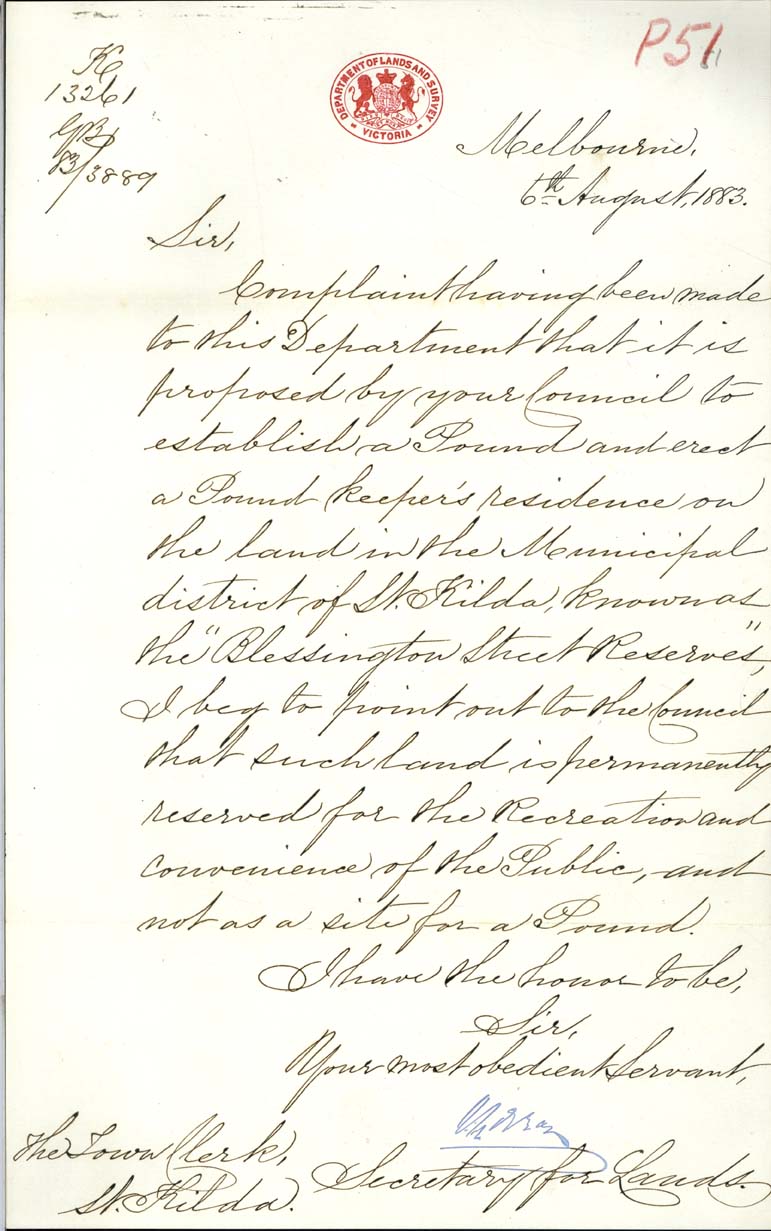 P51
51
K
13261
83/3889
DEPARTMENT OF LANDS AND SURVEY
VICTORIA
Melbourne,
6th August, 1883.
Sir,
Complaint having been made
to this Department that it is
proposed by your Council to
establish a Pound and erect
a Pound keeper's residence on
the land in the Municipal
district of St. Kilda, known as
the "Blessington Street Reserves",
I beg to point out to the Council
that such land is permanently
reserved for the Recreation and
convenience of the Public, and
not as a site for a Pound.
I have the honor to be,
Sir,
Your most obedient Servant,
Secretary for Lands.
The Town Clerk,
St. Kilda.